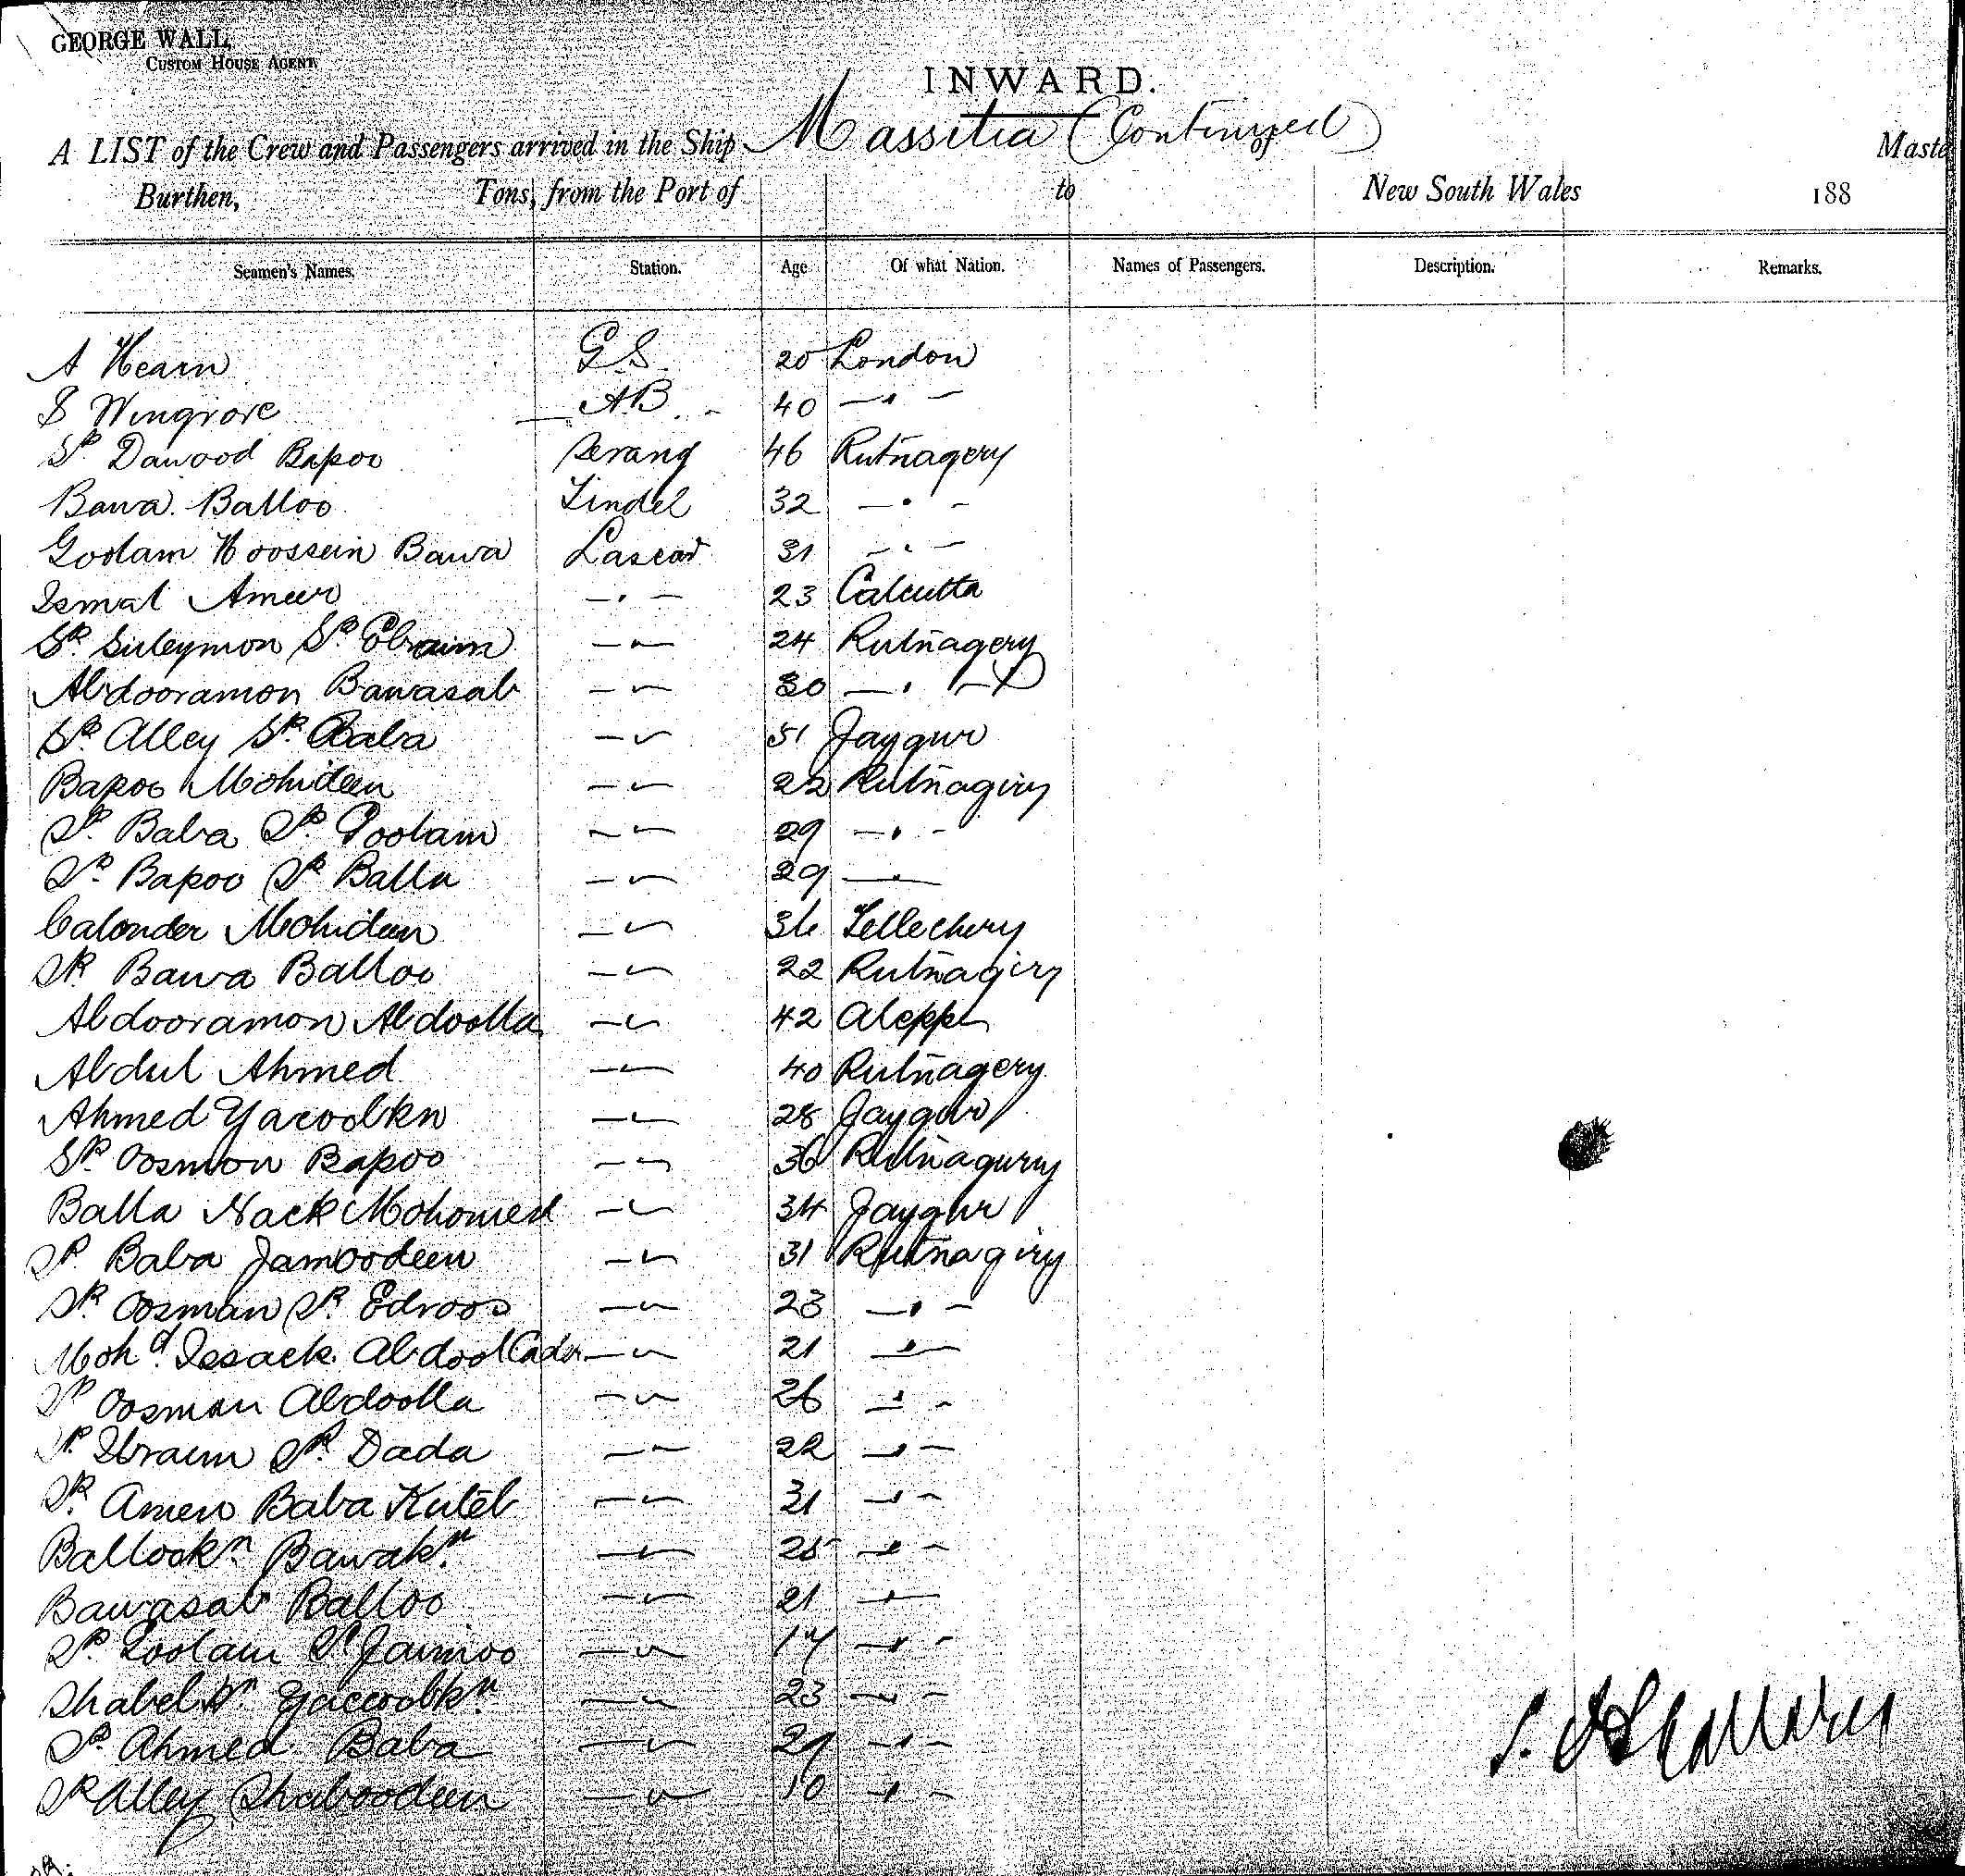 GEORGE WALL,
CUSTOM HOUSE AGENT.
INWARD.
A LIST of the Crew and Passengers arrived in the Ship Massilia (Continued) of Maste
Burthen, Tons, from the Port of to New South Wales 188
Seamen's Names. Station. Age Of what Nation. Names of Passengers. Description. Remarks.
A Hearn G.S. 20 London
S Wingrove AB. 40 — " —
Sk. Dawood Bapoo Serang 46 Rutnagery
Bawa Balloo Tindel 32 — " —
Goolam Hoossein Bawa Lascar 31 — " —
Ismal Ameer — " — 23 Calcutta
Sk. Suleymon Sk. Ebraim — " — 24 Rutnagery
Abdooramon Bawasab — " — 30 — " —
Sk. Alley Sk. Baba — " — 51 Jaygur
Bapoo Mohideen — " — 22 Rutnagiry
Sk. Baba Sk. Goolam — " — 29 — " —
Sk. Bapoo Sk. Balla — " — 29 — " —
Calonder Mohideen — " — 36 Tellechery
Sk. Bawa Balloo — " — 22 Rutnagiry
Abdooramon Abdoolla — " — 42
Abdul Ahmed — " — 40 Rutnagery
Ahmed Yacoobkn — " — 28 Jaygur
Sk. Oosmon Bapoo — " — 36 Rutnagurry
Balla Nack Mohomed — " — 34 Jaygur
Sk. Baba Jamoodeen — " — 31 Rutnagiry
Sk. Oosman Sk. Edroos — " — 23 — " —
Mohd. Issack Abdool Cader — " — 21 — " —
Sk. Oosman Abdoolla — " — 26 — " —
Sk. Ibraim Sk. Dada — " — 22 — " —
Sk. Ameen Baba Kuteb — " — 31 — " —
Ballookn. Bawakn. — " — 25 — " —
Bawasab Balloo — " — 21 — " —
Sk. Goolam Sk. Jaimoo — " — 17 — " —
Shabelkn Yacoobkn. — " — 23 — " —
Sk. Ahmed Baba — " — — " —
Sk Alley Shaboodeen — " — — " —